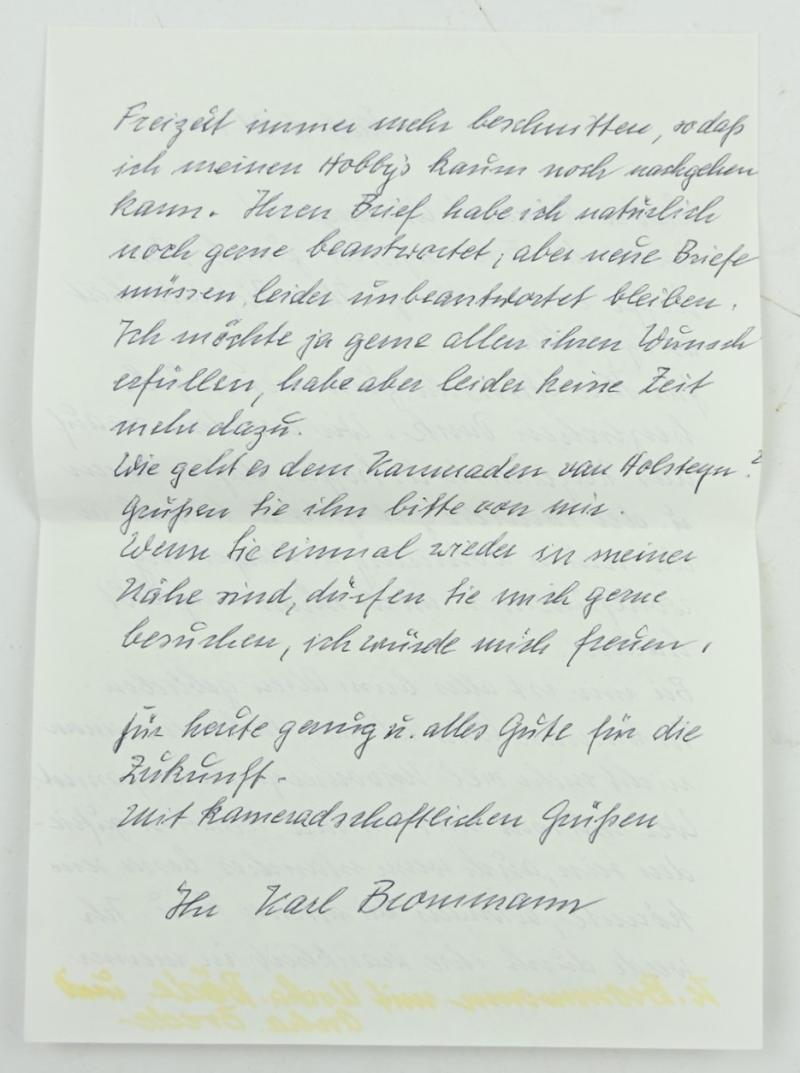 Freizeit immer mehr beschnitten, so daß
ich meinen Hobby's kaum noch nachgehen
kann. Ihren Brief habe ich natürlich
noch gerne beantwortet, aber neue Briefe
müssen leider unbeantwortet bleiben.
Ich möchte ja gerne allen ihren Wunsch
erfüllen, habe aber leider keine Zeit
mehr dazu.
Wie geht es dem Kameraden van Holsteyn?
Grüßen Sie ihn bitte von mir.
Wenn Sie einmal wieder in meiner
Nähe sind, dürfen Sie mich gerne
besuchen, ich würde mich freuen.
Für heute genug u. alles Gute für die
Zukunft.
Mit kameradschaftlichen Grüßen
Ihr Karl Brommann